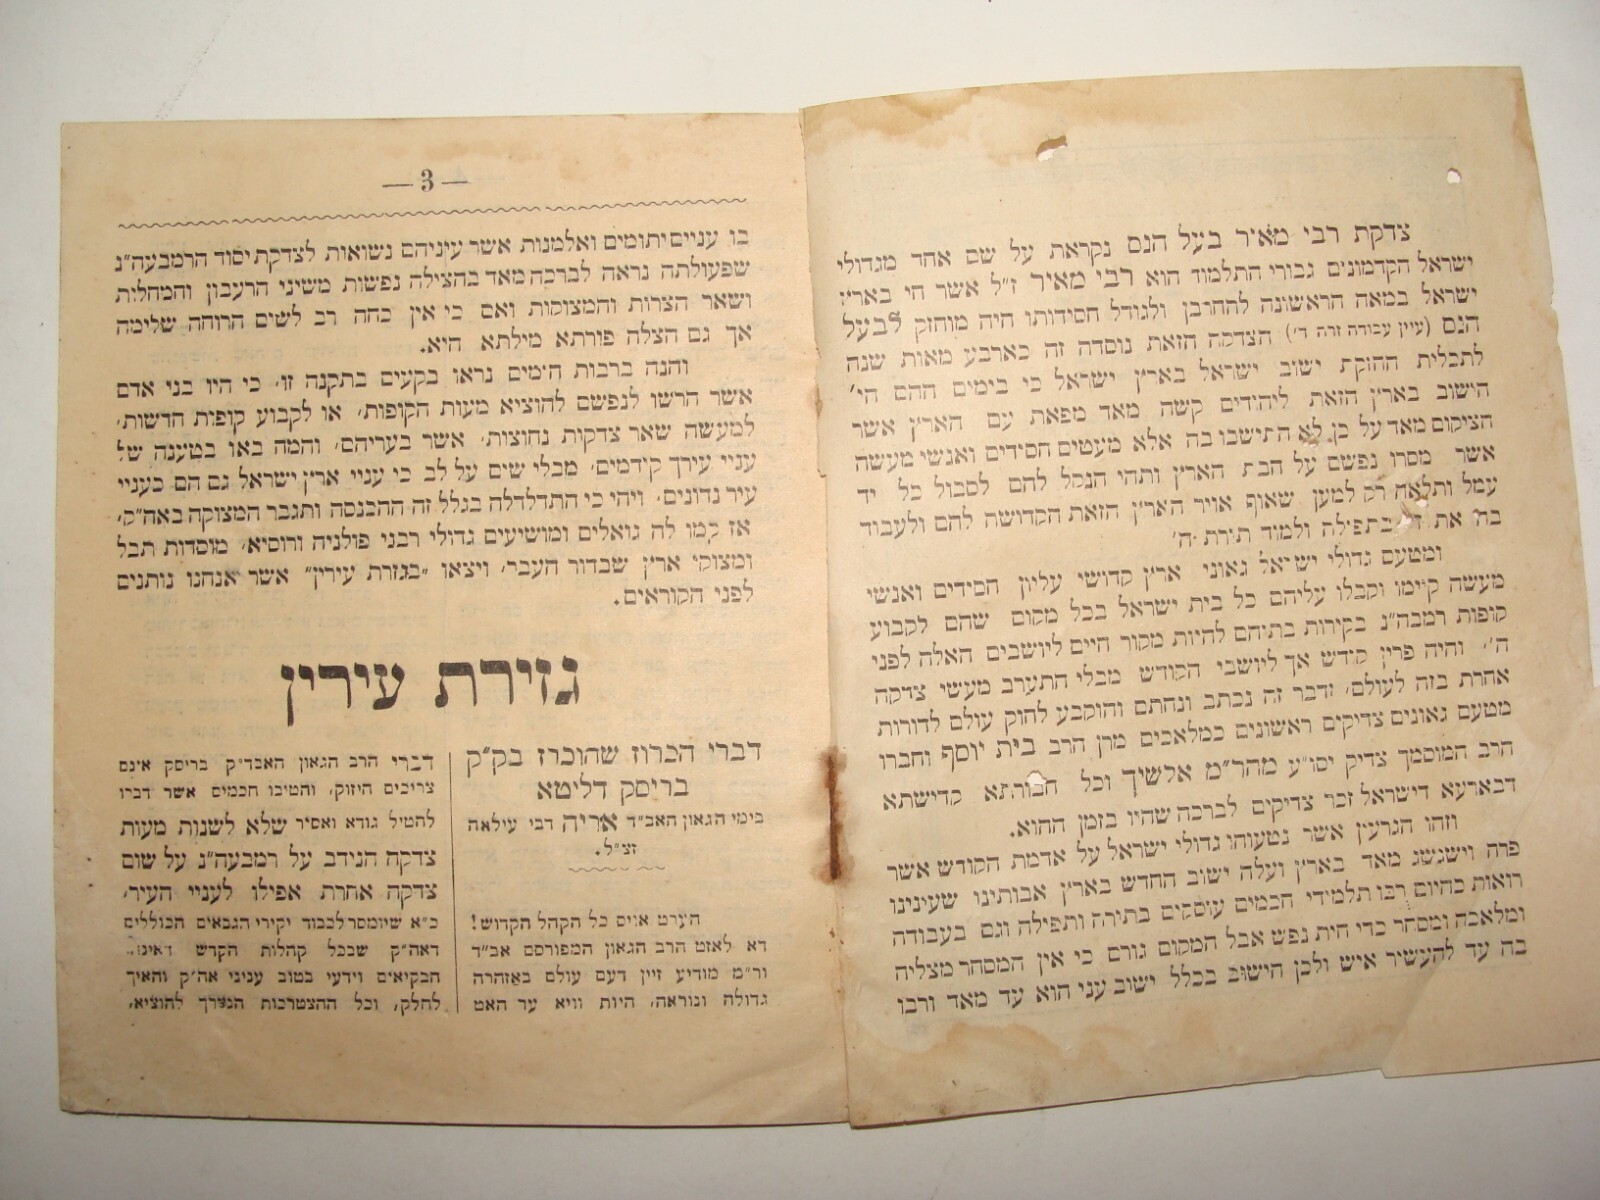 צדקת רבי מאיר בעל הנס נקראת על שם אחד מגדולי
ישראל הקדמונים גבורי התלמוד הוא רבי מאיר ז"ל אשר חי בארץ
ישראל במאה הראשונה להחרבן ולגודל חסידותו היה מוחזק לבעל
הנס (עיין עבודה זרה ד') הצדקה הזאת נוסדה זה כארבע מאות שנה
לתכלית החזקת ישוב ישראל בארץ ישראל כי בימים ההם הי'
הישוב בארץ הזאת ליהודים קשה מאד מפאת עם הארץ אשר
הציקום מאד על כן לא התישבו בה אלא מעטים חסידים ואנשי מעשה
אשר מסרו נפשם על חבת הארץ ותהי הנקל להם לסבול כל יד
עמל ותלאה רק למען שאוף אויר הארץ הזאת הקדושה להם ולעבוד
בה את ה' בתפילה ולמוד תורת ה'
ומטעם גדולי ישראל גאוני ארץ קדושי עליון חסידים ואנשי
מעשה קיימו וקבלו עליהם כל בית ישראל בכל מקום שהם לקבוע
קופות רמבה"נ בקירות בתיהם להיות מקור חיים ליושבים האלה לפני
ה', והיה פרין קודש אך ליושבי הקודש מבלי התערב מעשי צדקה
אחרת בזה לעולם, ודבר זה נכתב ונחתם והוקבע לחוק עולם לדורות
מטעם גאונים צדיקים ראשונים כמלאכים מרן הרב בית יוסף וחברו
הרב המוסמך צדיק יסו"ע מהר"מ אלשיך וכל חבורתא קדישתא
דבארעא דישראל זכר צדיקים לברכה שהיו בזמן ההוא.
וזהו הגרעין אשר נטעוהו גדולי ישראל על אדמת הקודש אשר
פרה וישגשג מאד בארץ ועלה ישוב החדש בארץ אבותינו שעינינו
רואות כהיום רבו תלמידי חכמים עוסקים בתורה ותפילה וגם בעבודה
ומלאכה ומסחר כדי חית נפש אבל המקום גורם כי אין המסחר מצליח
בה עד להעשיר איש ולכן הישוב בכלל ישוב עני הוא עד מאד ורבו
— 3 —
בו עניים יתומים ואלמנות אשר עיניהם נשואות לצדקת יסוד הרמבעה"נ
שפעולתה נראה לברכה מאד בהצילה נפשות משיני הרעבון והמחלות
ושאר הצרות והמצוקות ואם כי אין כחה רב לשים הרוחה שלימה
אך גם הצלה פורתא מילתא היא.
והנה ברבות הימים נראו בקעים בתקנה זו, כי היו בני אדם
אשר הרשו לנפשם להוציא מעות הקופות, או לקבוע קופות חדשות,
למעשה שאר צדקות נחוצות, אשר בעריהם, והמה באו בטענה של
עניי עירך קודמים, מבלי שים על לב כי עניי ארץ ישראל גם הם כעניי
עיר נדונים, ויהי כי התדלדלה בגלל זה ההכנסה ותגבר המצוקה באה"ק,
אז קמו לה גואלים ומושיעים גדולי רבני פולניה ורוסיא, מוסדות תבל
ומצוקי ארץ שבדור העבר, ויצאו "בגזרת עירין" אשר אנחנו נותנים
לפני הקוראים.
גזירת עירין
דברי הכרוז שהוכרז בק"ק
בריסק דליטא
בימי הגאון האב"ד אריה דבי עילאה
זצ"ל.
הערט אויס כל הקהל הקדוש!
דא לאזט הרב הגאון המפורסם אב"ד
ור"מ מודיע זיין דעם עולם באזהרה
גדולה ונוראה, היות וויא ער האט
דברי הרב הגאון האבד"ק בריסק אינם
צריכים חיזוק, והטיבו חכמים אשר דברו
להטיל גודא ואסיר שלא לשנות מעות
צדקה הנידב על רמבעה"נ על שום
צדקה אחרת אפילו לעניי העיר,
כ"א שיומסר לכבוד יקירי הגבאים הכוללים
דאה"ק שבכל קהלות הקדש
הבקיאים וידעי בטוב עניני אה"ק והאיך
לחלק, וכל ההצטרכות הנצרך להוציא,